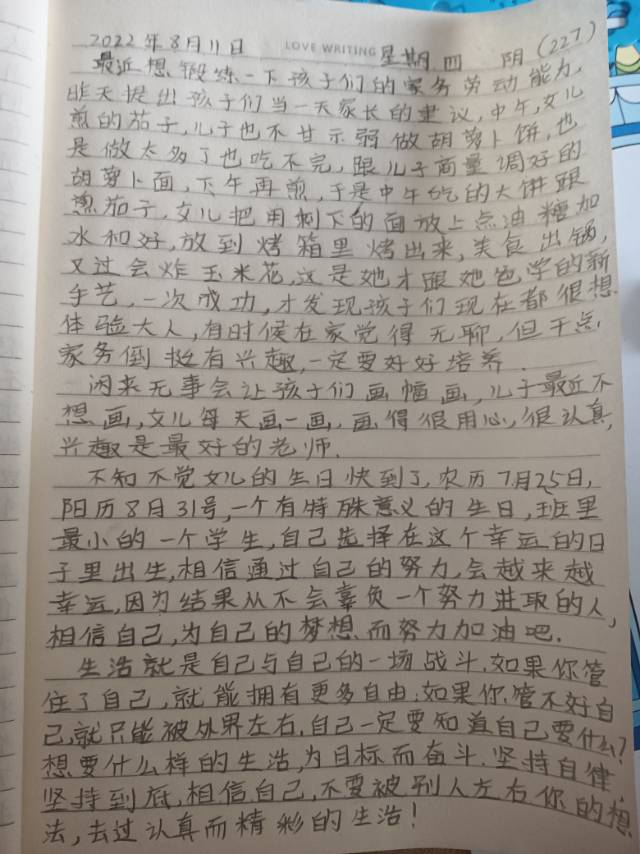 2022年8月11日 LOVE WRITING 星期四 阴(227)
最近想锻炼一下孩子们的家务劳动能力,
昨天提出孩子们当一天家长的建议,中午,女儿
煎的茄子,儿子也不甘示弱做胡萝卜饼,也
是做太多了也吃不完,跟儿子商量调好的
胡萝卜面,下午再煎,于是中午吃的大饼跟
茄子,女儿把用剩下的面放上点油糖加
水和好,放到烤箱里烤出来,美食出锅,
又过会炸玉米花,这是她才跟她爸学的新
手艺,一次成功,才发现孩子们现在都很想
体验大人,有时候在家觉得无聊,但干点
家务倒挺有兴趣,一定要好好培养.
闲来无事会让孩子们画幅画,儿子最近不
想画,女儿每天画一画,画得很用心,很认真,
兴趣是最好的老师.
不知不觉女儿的生日快到了,农历7月25日,
阳历8月31号,一个有特殊意义的生日,班里
最小的一个学生,自己选择在这个幸运的日
子里出生,相信通过自己的努力,会越来越
幸运,因为结果从不会辜负一个努力进取的人,
相信自己,为自己的梦想而努力加油吧.
生活就是自己与自己的一场战斗.如果你管
住了自己,就能拥有更多自由;如果你管不好自
己,就只能被外界左右.自己一定要知道自己要什么?
想要什么样的生活,为目标而奋斗.坚持自律,
坚持到底,相信自己,不要被别人左右你的想
法,去过认真而精彩的生活!